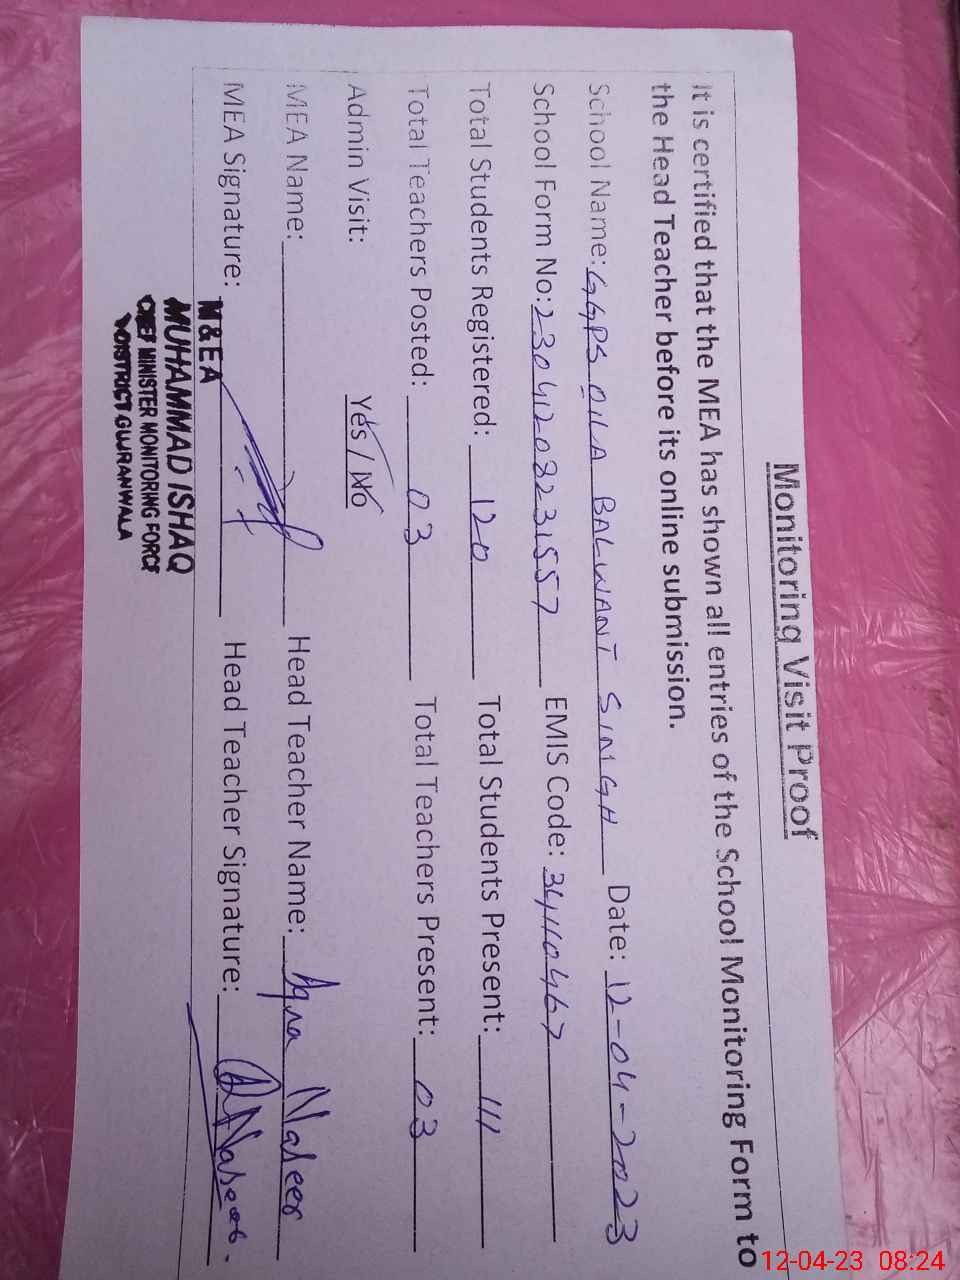 Monitoring Visit Proof
It is certified that the MEA has shown all entries of the School Monitoring Form to
the Head Teacher before its online submission.
School Name: GGPS QILA BALWANT SINGH Date: 12-04-2023
School Form No: 230412083231557 EMIS Code: 34110467
Total Students Registered: 120 Total Students Present: 111
Total Teachers Posted: 03 Total Teachers Present: 03
Admin Visit: Yes / No
MEA Name: Head Teacher Name: Aqra Naseer
MEA Signature: Head Teacher Signature: Naseer.
M & EA
MUHAMMAD ISHAQ
CHIEF MINISTER MONITORING FORCE
DISTRICT GUJRANWALA
12-04-23 08:24